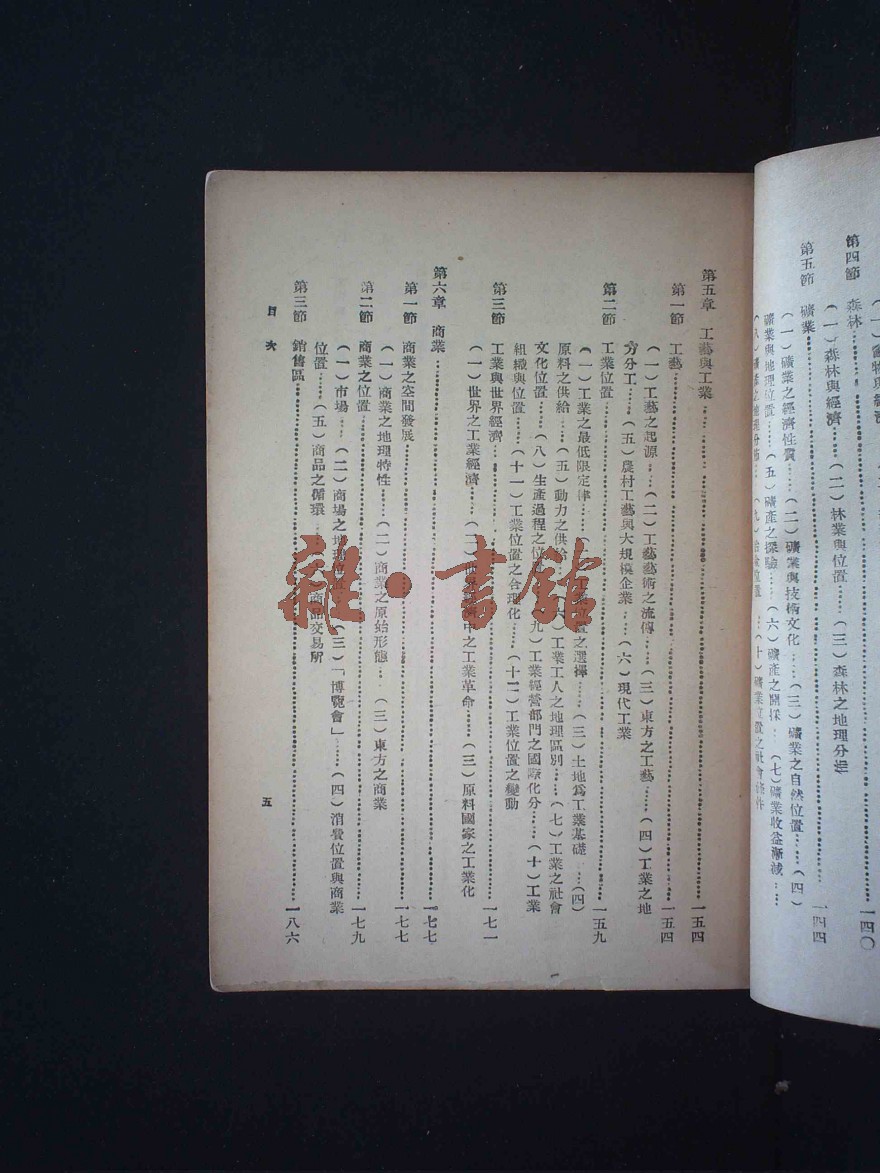 第四節 森林……一四〇
（一）森林與經濟……（二）林業與位置……（三）森林之地理分佈
第五節 礦業……一四四
（一）礦業之經濟性質……（二）礦業與技術文化……（三）礦業之自然位置……（四）
礦業與地理位置……（五）礦產之探驗……（六）礦產之開採……（七）礦業收益漸減……
第五章 工藝與工業……一五四
第一節 工藝……一五四
（一）工藝之起源……（二）工藝藝術之流傳……（三）東方之工藝……（四）工業之地
方分工……（五）農村工藝與大規模企業……（六）現代工業
第二節 工業位置……一五九
（一）工業之最低限定律……（二）工業位置之選擇……（三）土地爲工業基礎……（四）
原料之供給……（五）動力之供給……（六）工業工人之地理區別……（七）工業之社會
文化位置……（八）生產過程之位置……（九）工業經營部門之國際化分……（十）工業
組織與位置……（十一）工業位置之合理化……（十二）工業位置之變動
第三節 工業與世界經濟……一七一
（一）世界之工業經濟……（二）世界經濟中之工業革命……（三）原料國家之工業化
第六章 商業……一七七
第一節 商業之空間發展……一七七
（一）商業之地理特性……（二）商業之原始形態……（三）東方之商業
第二節 商業之位置……一七九
（一）市場……（二）商場之地理位置……（三）「博覽會」……（四）消費位置與商業
位置……（五）商品之循環……（六）商品交易所
第三節 銷售區……一八六
目次 五
雜·書館